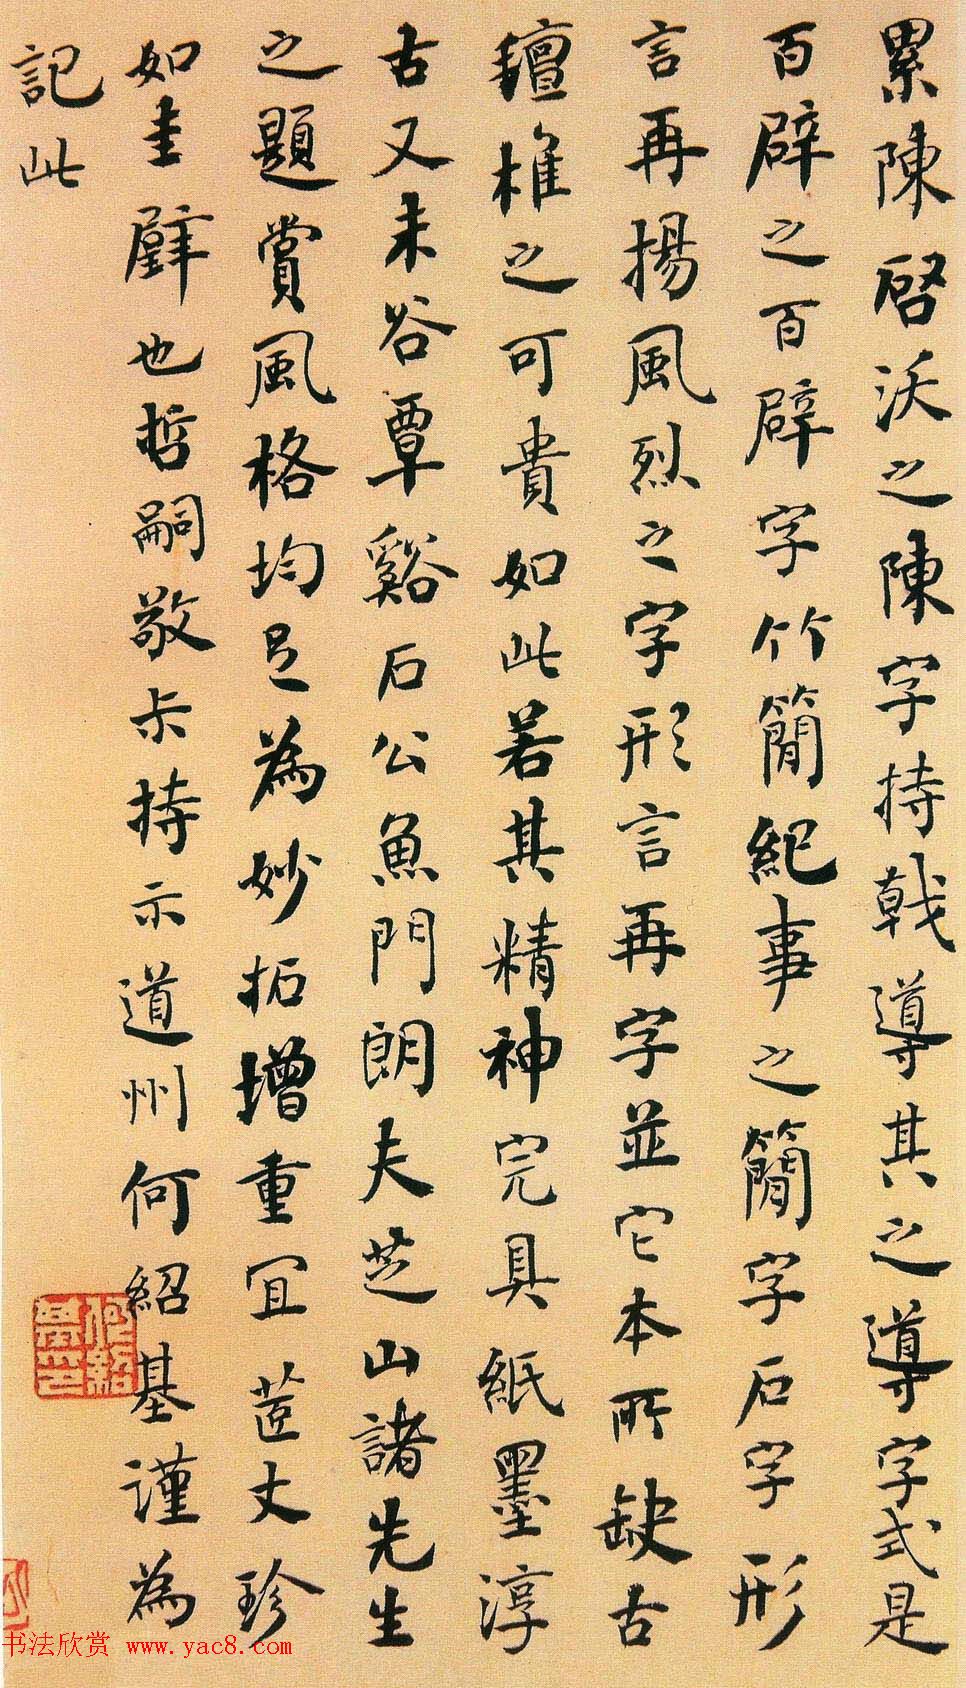 累陳啓沃之陳字持戟導其之導字式是
百辟之百辟字竹簡紀事之簡字石字形
言再揚風烈之字形言再字並它本所缺古
氊椎之可貴如此若其精神完具紙墨淳
古又未谷覃谿石公魚門朗夫芝山諸先生
之題賞風格均足為妙拓增重宜茝丈珍
如圭璧也哲嗣敬尗持示道州何紹基謹為
記此
何紹基印
书法欣赏 www.yac8.com